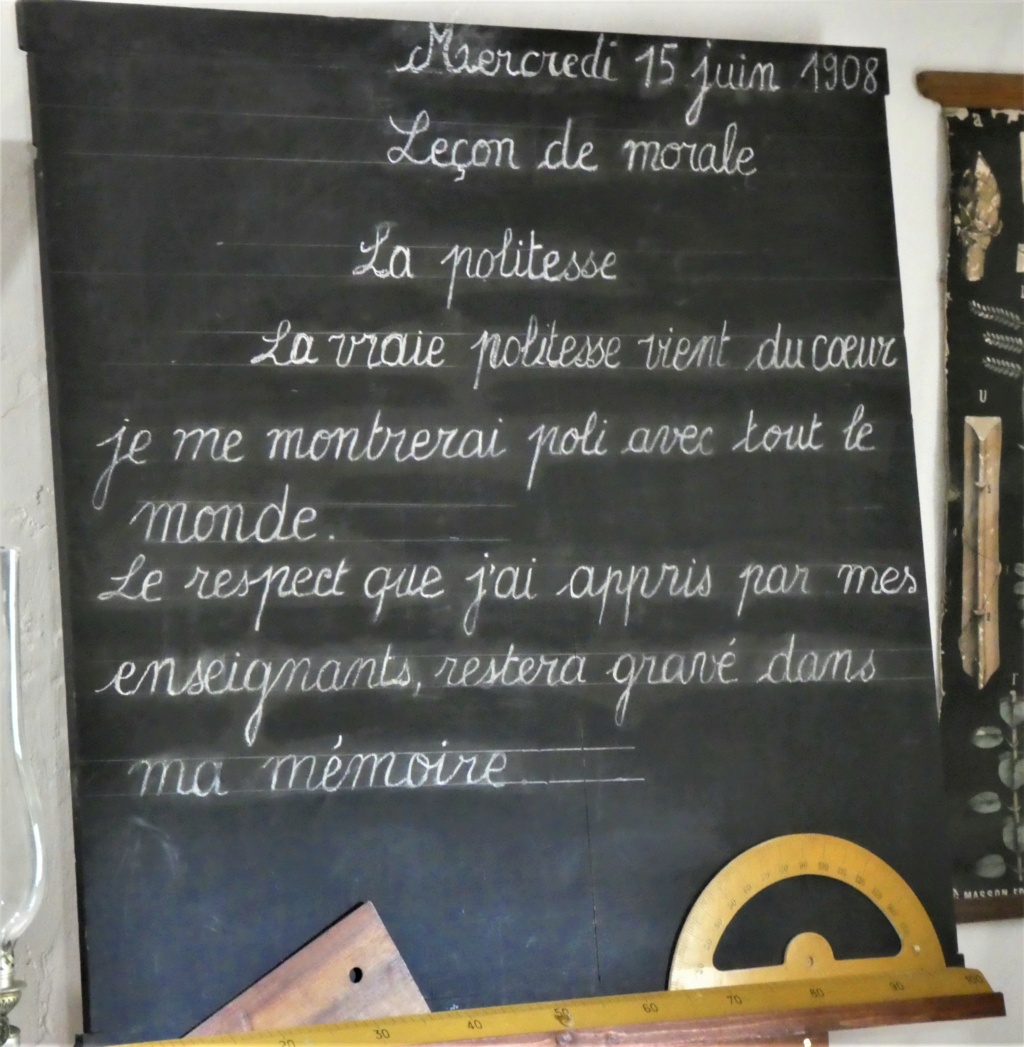 Mercredi 15 juin 1908
Leçon de morale
La politesse
La vraie politesse vient du coeur
je me montrerai poli avec tout le
monde.
Le respect que j'ai appris par mes
enseignants, restera gravé dans
ma mémoire
a
U
r
MASSON
20 30 40 50 60 70 80 90 100